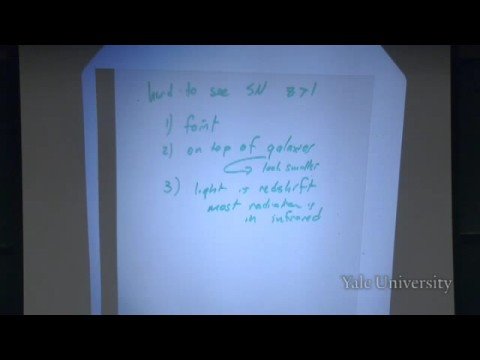 hard to see SN z>1
1) faint
2) on top of galaxies
look smaller
3) light is redshift
most radiation is
in infrared
Yale University